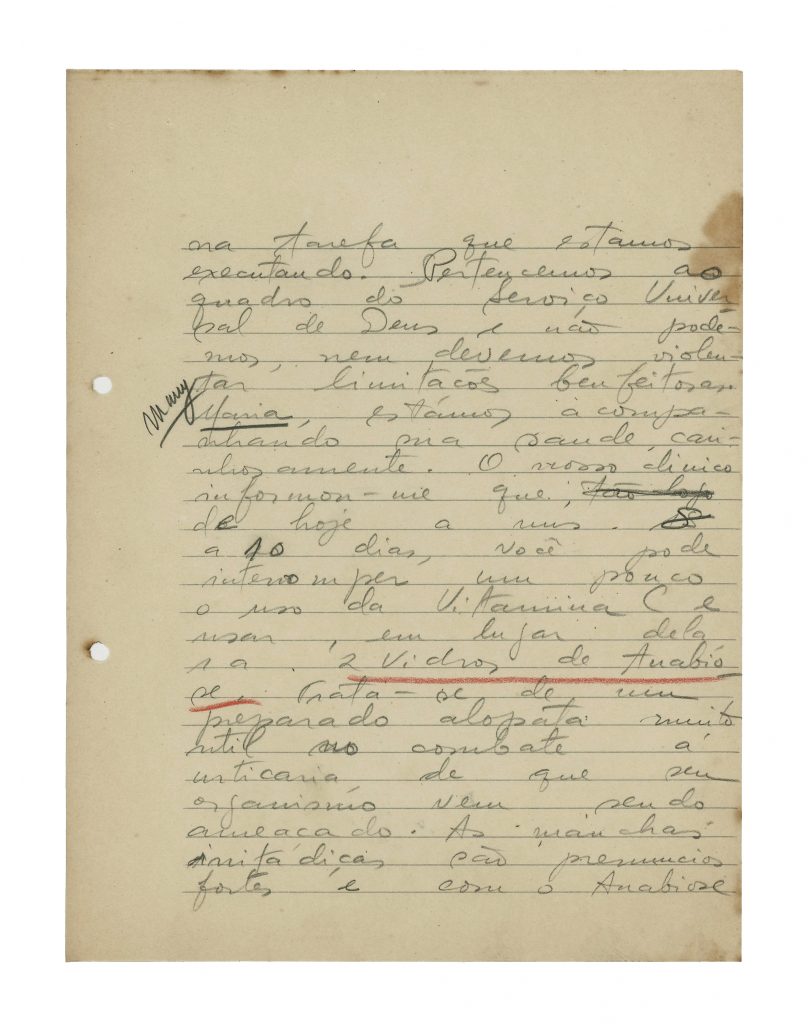 na tarefa que estamos
executando. Pertencemos ao
quadro do Serviço Univer
sal de Deus e não pode-
mos, nem devemos violen-
tar limitações benfeitoras.
Maria, estámos acompa-
nhando sua saude, cari-
nhosamente. O nosso clinico
informou-me que,
de hoje a uns 8
a 10 dias, você pode
interromper um pouco
o uso da Vitamina C e
usar, em lugar dela
1 a 2 Vidros de Anabió
se. Trata-se de um
preparado alopata muito
util no combate á
urticaria, de que seu
organismo vem sendo
ameaçado. As manchas
são prenuncios
fortes e com o Anabiose